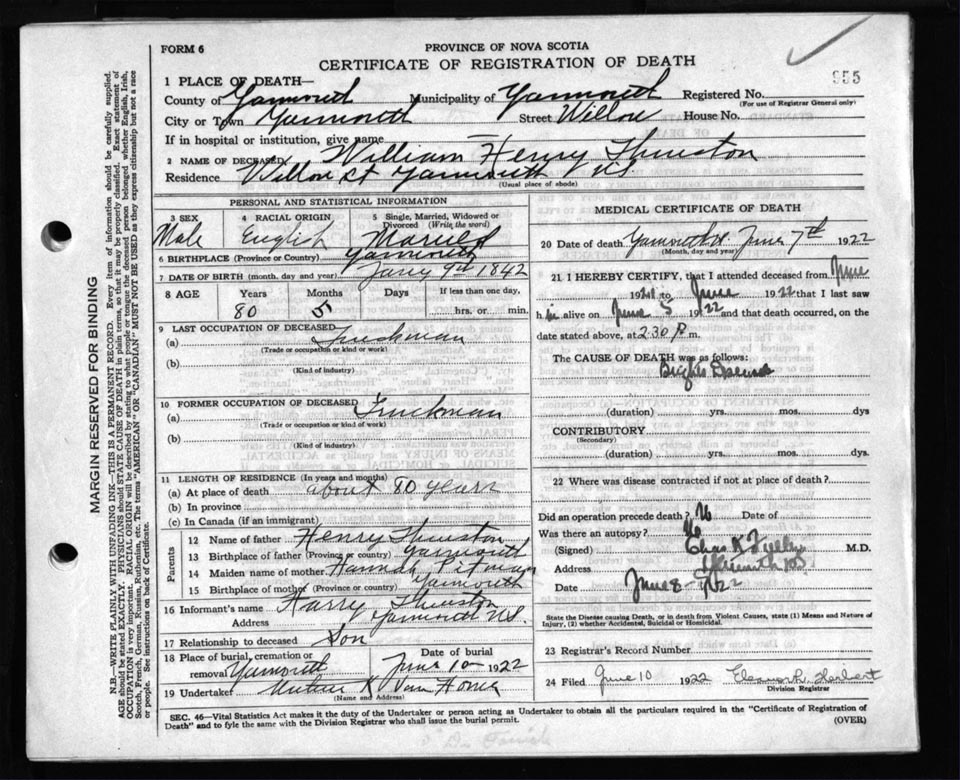 FORM 6
PROVINCE OF NOVA SCOTIA
CERTIFICATE OF REGISTRATION OF DEATH
955
1 PLACE OF DEATH—
County of Yarmouth Municipality of Yarmouth Registered No.
(For use of Registrar General only)
City or Town Yarmouth Street Willow House No.
If in hospital or institution, give name
2 NAME OF DECEASED William Henry Thurston
Residence Willow St Yarmouth N.S.
(Usual place of abode)
PERSONAL AND STATISTICAL INFORMATION
3 SEX 4 RACIAL ORIGIN 5 Single, Married, Widowed or Divorced (Write the word)
Male English Married
6 BIRTHPLACE (Province or Country) Yarmouth
7 DATE OF BIRTH (month, day and year) Jany 9th 1842
8 AGE Years Months Days If less than one day,
80 5 hrs. or min.
9 LAST OCCUPATION OF DECEASED
(a) Truckman
(Trade or occupation or kind of work)
(b)
(Kind of industry)
10 FORMER OCCUPATION OF DECEASED
(a) Truckman
(Trade or occupation or kind of work)
(b)
(Kind of industry)
11 LENGTH OF RESIDENCE (In years and months)
(a) At place of death about 80 years
(b) In province
(c) In Canada (if an immigrant)
Parents
12 Name of father Henry Thurston
13 Birthplace of father (Province or country) Yarmouth
14 Maiden name of mother Hannah Pitman
15 Birthplace of mother (Province or country) Yarmouth
16 Informant's name Harry Thurston
Address Yarmouth N.S.
17 Relationship to deceased Son
18 Place of burial, cremation or removal Yarmouth Date of burial June 10 1922
19 Undertaker K Van Horne
(Name and Address)
MEDICAL CERTIFICATE OF DEATH
20 Date of death Yarmouth June 7th 1922
(Month, day and year)
21 I HEREBY CERTIFY, that I attended deceased from June
1921 to June 1922 that I last saw
him alive on June 5 1922 and that death occurred, on
date stated above, at 2.30 P.m.
The CAUSE OF DEATH was as follows:
Brights Disease
(duration) yrs. mos. dys
CONTRIBUTORY
(Secondary)
(duration) yrs. mos. dys.
22 Where was disease contracted if not at place of death?
Did an operation precede death? No Date of
Was there an autopsy? No
(Signed) Chas M.D.
Address Yarmouth N.S.
Date June 8 1922
State the Disease Causing Death, or in death from Violent Causes, state (1) Means and Nature of
Injury, (2) whether Accidental, Suicidal or Homicidal.
23 Registrar's Record Number
24 Filed June 10 1922
Division Registrar
SEC. 46—Vital Statistics Act makes it the duty of the Undertaker or person acting as Undertaker to obtain all the particulars required in the "Certificate of Registration of
Death" and to fyle the same with the Division Registrar who shall issue the burial permit.
(OVER)
MARGIN RESERVED FOR BINDING
N.B—WRITE PLAINLY WITH UNFADING INK—THIS IS A PERMANENT RECORD. Every item of information should be carefully supplied.
AGE should be stated EXACTLY. PHYSICIANS should STATE CAUSE OF DEATH in plain terms, so that it may be properly classified. Exact statement of
OCCUPATION is very important. RACIAL ORIGIN will be described by stating to what people or tongue the deceased person belonged whether English, Irish,
Scotch, French, German, Russian, Ruthenian, etc. The terms "AMERICAN" OR "CANADIAN" MUST NOT BE USED as they express citizenship but not a race
or people. See instructions on back of Certificate.